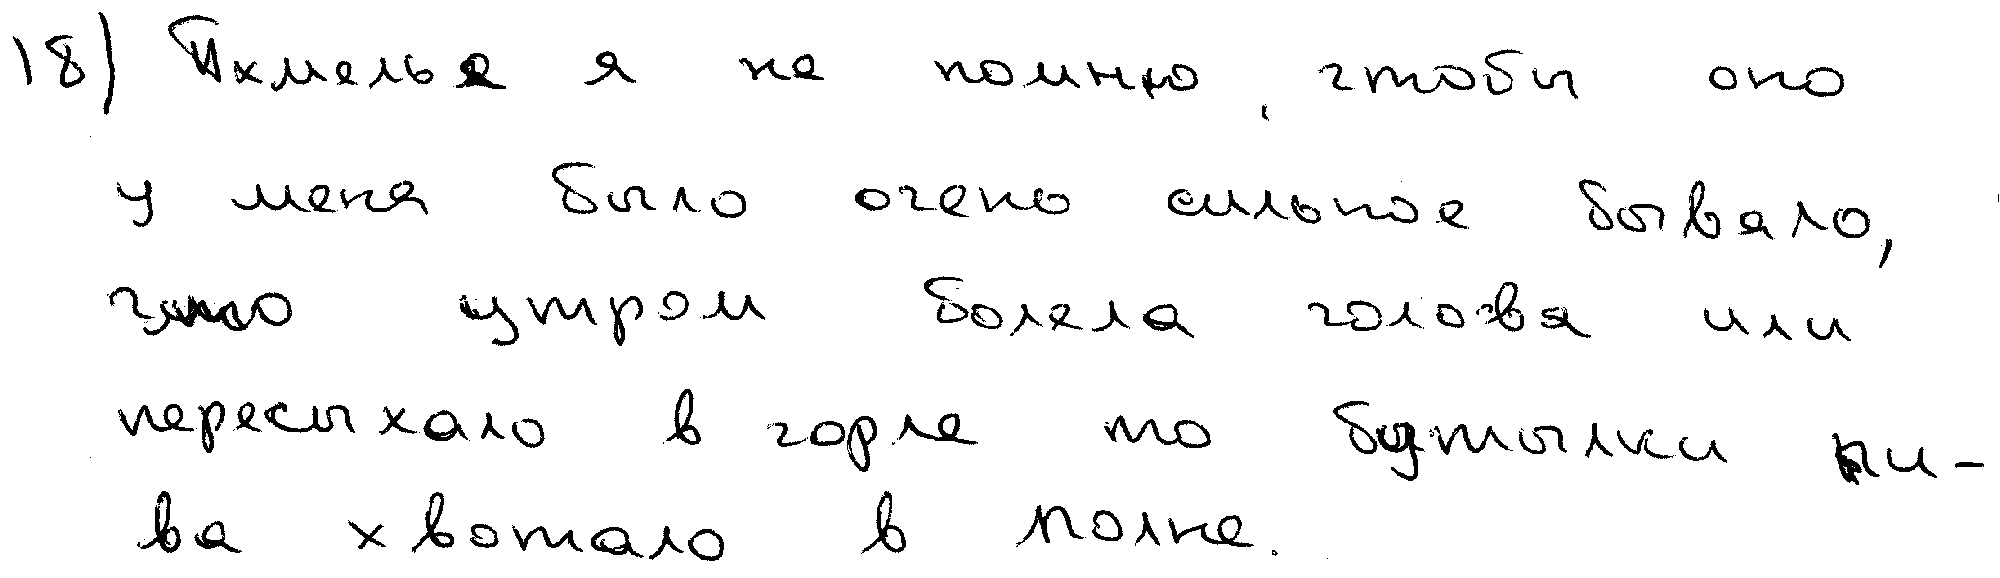 18) Пхмелья я не помню, чтобы оно
у меня было очень сильное бывало,
что утром болела голова или
пересыхало в горле то бутылки пи-
ва хвотало в полне.